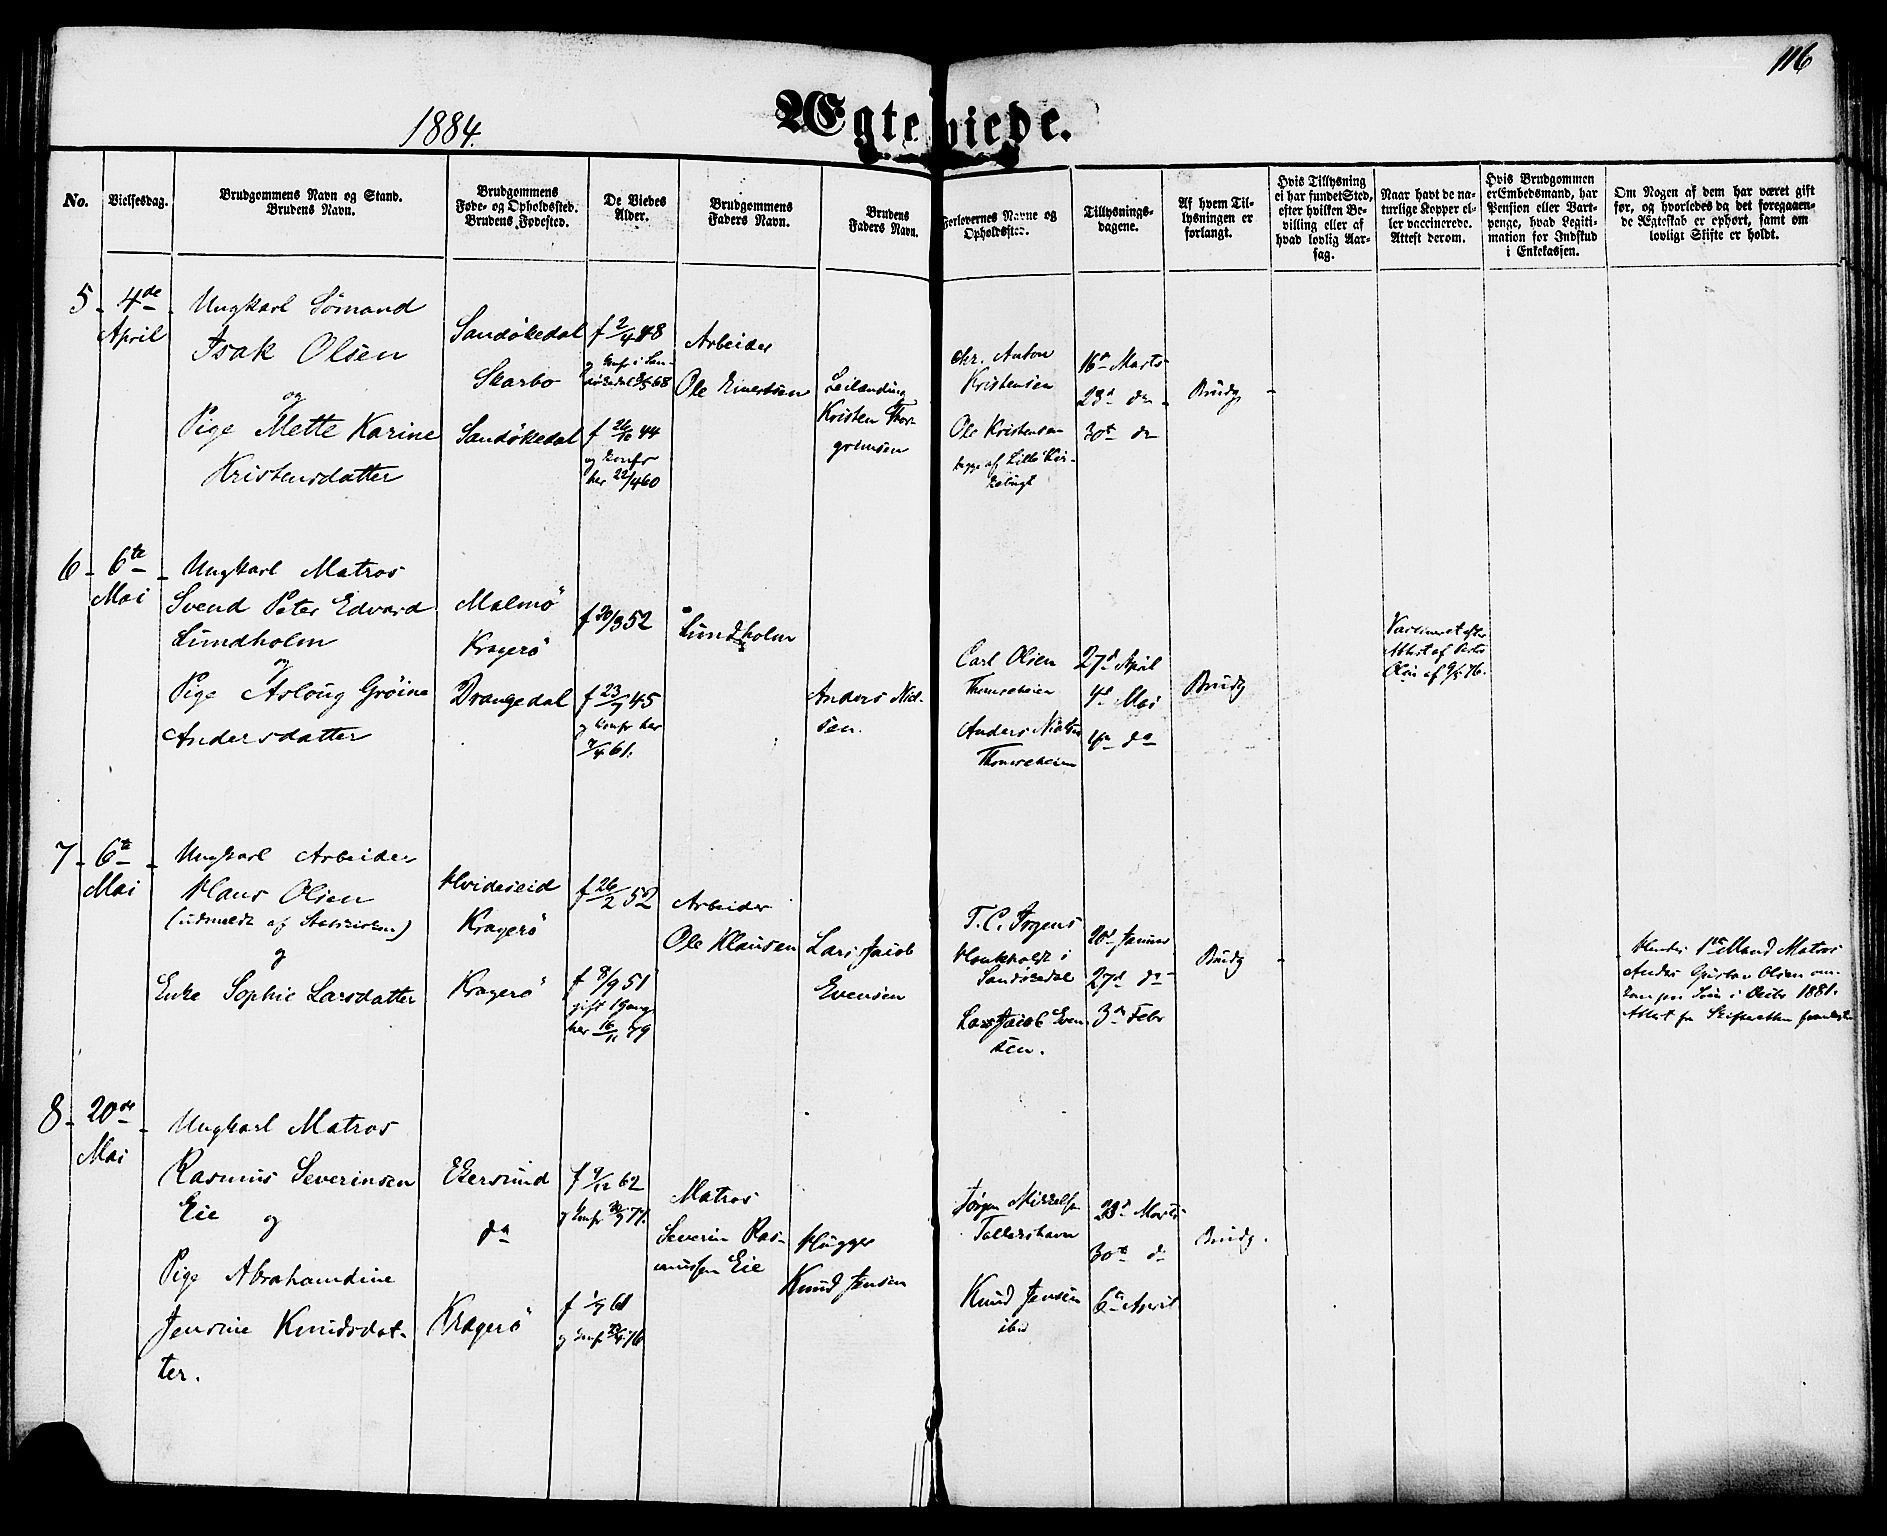 116
1884.
Ægteviede.
No.
Vielsesdag.
Brudgommens Navn og Stand.
Brudens Navn.
Brudgommens
Føde- og Opholdssted.
Brudens Fødested.
De Viedes
Alder.
Brudgommens
Faders Navn.
Brudens
Faders Navn.
Forlovernes Navne og
Opholdssted.
Tillysnings-
dagene.
Af hvem Til-
lysningen er
forlangt.
Hvis Tillysning
ei har fundet Sted,
efter hvilken Be-
villing eller af
hvad lovlig Aar-
sag.
Naar havt de na-
turlige Kopper el-
ler vaccinerede.
Attest derom.
Hvis Brudgommen
er Embedsmand, har
Pension eller Vart-
penge, hvad Legiti-
mation for Indskud
i Enkekassen.
Om Nogen af dem har været gift
før, og hvorledes da det foregaaen-
de Ægteskab er ophørt, samt om
lovligt Skifte er holdt.
5 - 4de
April
Ungkarl Sömand
Isak Olsen
og
Pige Mette Karine
Kristensdatter
Sandökedal
Skarbo
Sandökedal
f 2/4 48
f 26/10 44
og konfr
her 22/4 60
Arbeider
Ole Einertsen
Leilænding
Kristen Thor-
grimsen
Chr. Anton
Kristensen
Ole Kristensen
begge af Lille Kir-
16de Marts
23de do
30te do
Brudg.
6 - 6te
Mai
Ungkarl Matros
Svend Peter Edvard
Lundholm
og
Pige Aslaug Gröine
Andersdatter
Malmö
Kragerö
Drangedal
f 20/8 52
f 23/7 45
og konfr her
7/4 61.
Lundholm
Anders Niel-
sen.
Carl Olsen
Anders Nielsen
27de April
4de Mai
do
Brudg
Vaccineret efter
Attest af
76.
7 - 6te
Mai
Ungkarl Arbeider
Hans Olsen
(udmeldt af Statskirken)
og
Enke Sophie Larsdatter
Hvideseid
Kragerö
Kragerö
f 26/2 52
f 8/9 51
gift 1 Gang
her 16/11 79
Arbeider
Ole Klausen
Lars Jacob
Evensen
T. C. Irgens
i
Sandökedal
Lars Jacob Even-
sen.
20de Januar
27de do
3de Febr
Brudg
Hendes 1ste Mand Matros
Anders Gustav Olsen om-
kom paa Söen i Octbr 1881.
Attest fra Skifteretten fremlagt
8 - 20de
Mai
Ungkarl Matros
Rasmus Severinsen
Eie og
Pige Abrahamdine
Jensine Knudsdat-
ter.
Ekersund
do
Kragerö
f 9/12 62
og konfr 77.
f 1/7 61
og konfr 76
Matros
Severin Ras-
mussen Eie
Hugger
Knud Jensen
Jörgen Mikkelsen
Tallakshavn
Knud Jensen
ibid
23de Marts
30te do
6te April
Brudg.